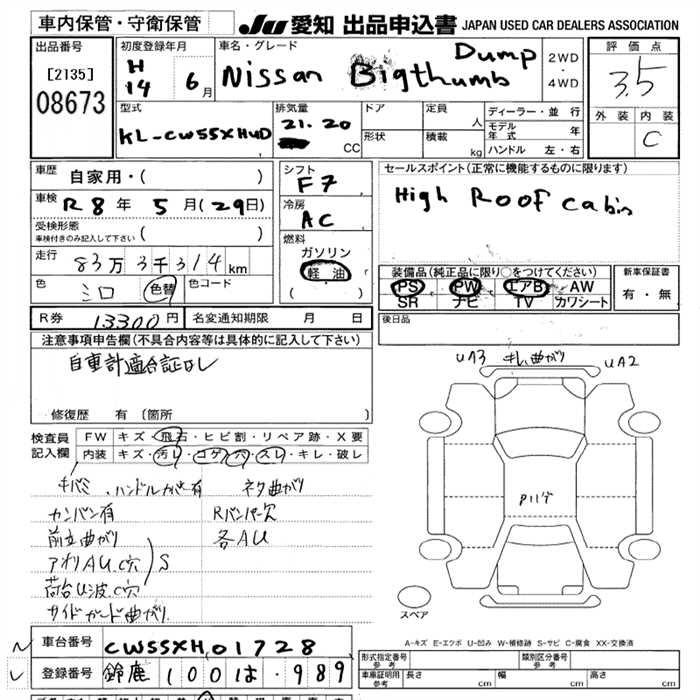 車内保管・守衛保管
JU 愛知 出品申込書 JAPAN USED CAR DEALERS ASSOCIATION
出品番号
[2135]
08673
初度登録年月
H
14 6月
車名・グレード
Nissan Bigthumb Dump
2WD
・
4WD
評価点
3.5
外装 内装
C
型式
KL-CW55XHUD
排気量
21.20
CC
ドア
形状
定員
人
積載
kg
ディーラー・並行
モデル年式 年
ハンドル 左・右
車歴
自家用・( )
車検
R 8年 5月(29日)
受検形態
車検付きのみ記入して下さい ( )
走行
83万3千314km
色
シロ
色替
色コード
シフト
F7
冷房
AC
燃料
ガソリン
軽油
( )
セールスポイント(正常に機能するものに限ります)
High Roof Cabin
装備品(純正品に限り○をつけてください)
PS PW エアB AW
SR ナビ TV カワシート
新車保証書
有・無
R券 13300円
名変通知期限 月 日
後日品
注意事項申告欄(不具合内容等は具体的に記入して下さい)
自重計適合証なし
修復歴 有 〔箇所 〕
検査員
記入欄
FW キズ・飛石・ヒビ割・リペア跡・X要
内装 キズ・汚レ・コゲ・穴・スレ・キレ・破レ
UA3 キレ曲がり UA2
ハンドルガサ有 ネタ曲がり
カンバン有 Rバンパー欠
前立曲がり 各AU
アオリAU.C穴
荷台U波C穴 S
サイドガード曲がり
スペア
A-キズ E-エツボ U-凹み W-補修跡 S-サビ C-腐食 XX-交換済
車台番号 CW55XH,01728
登録番号 鈴鹿 100 は・989
形式指定番号
参考
類別区分番号
参考
車庫証明用
参考
長さ cm 幅 cm 高さ cm